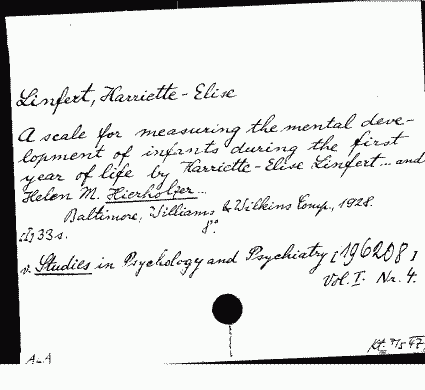 Linfert, Harriette-Elise
A scale for measuring the mental deve-
lopment of infants during the first
year of life by Harriette-Elise Linfert... and
Helen M. Hierholzer...
Baltimore, Williams & Wilkins Comp., 1928.
8°
[1] 33 s.
v. Studies in Psychology and Psychiatry [196208]
Vol. I. Nr. 4.
Kt.
A-A